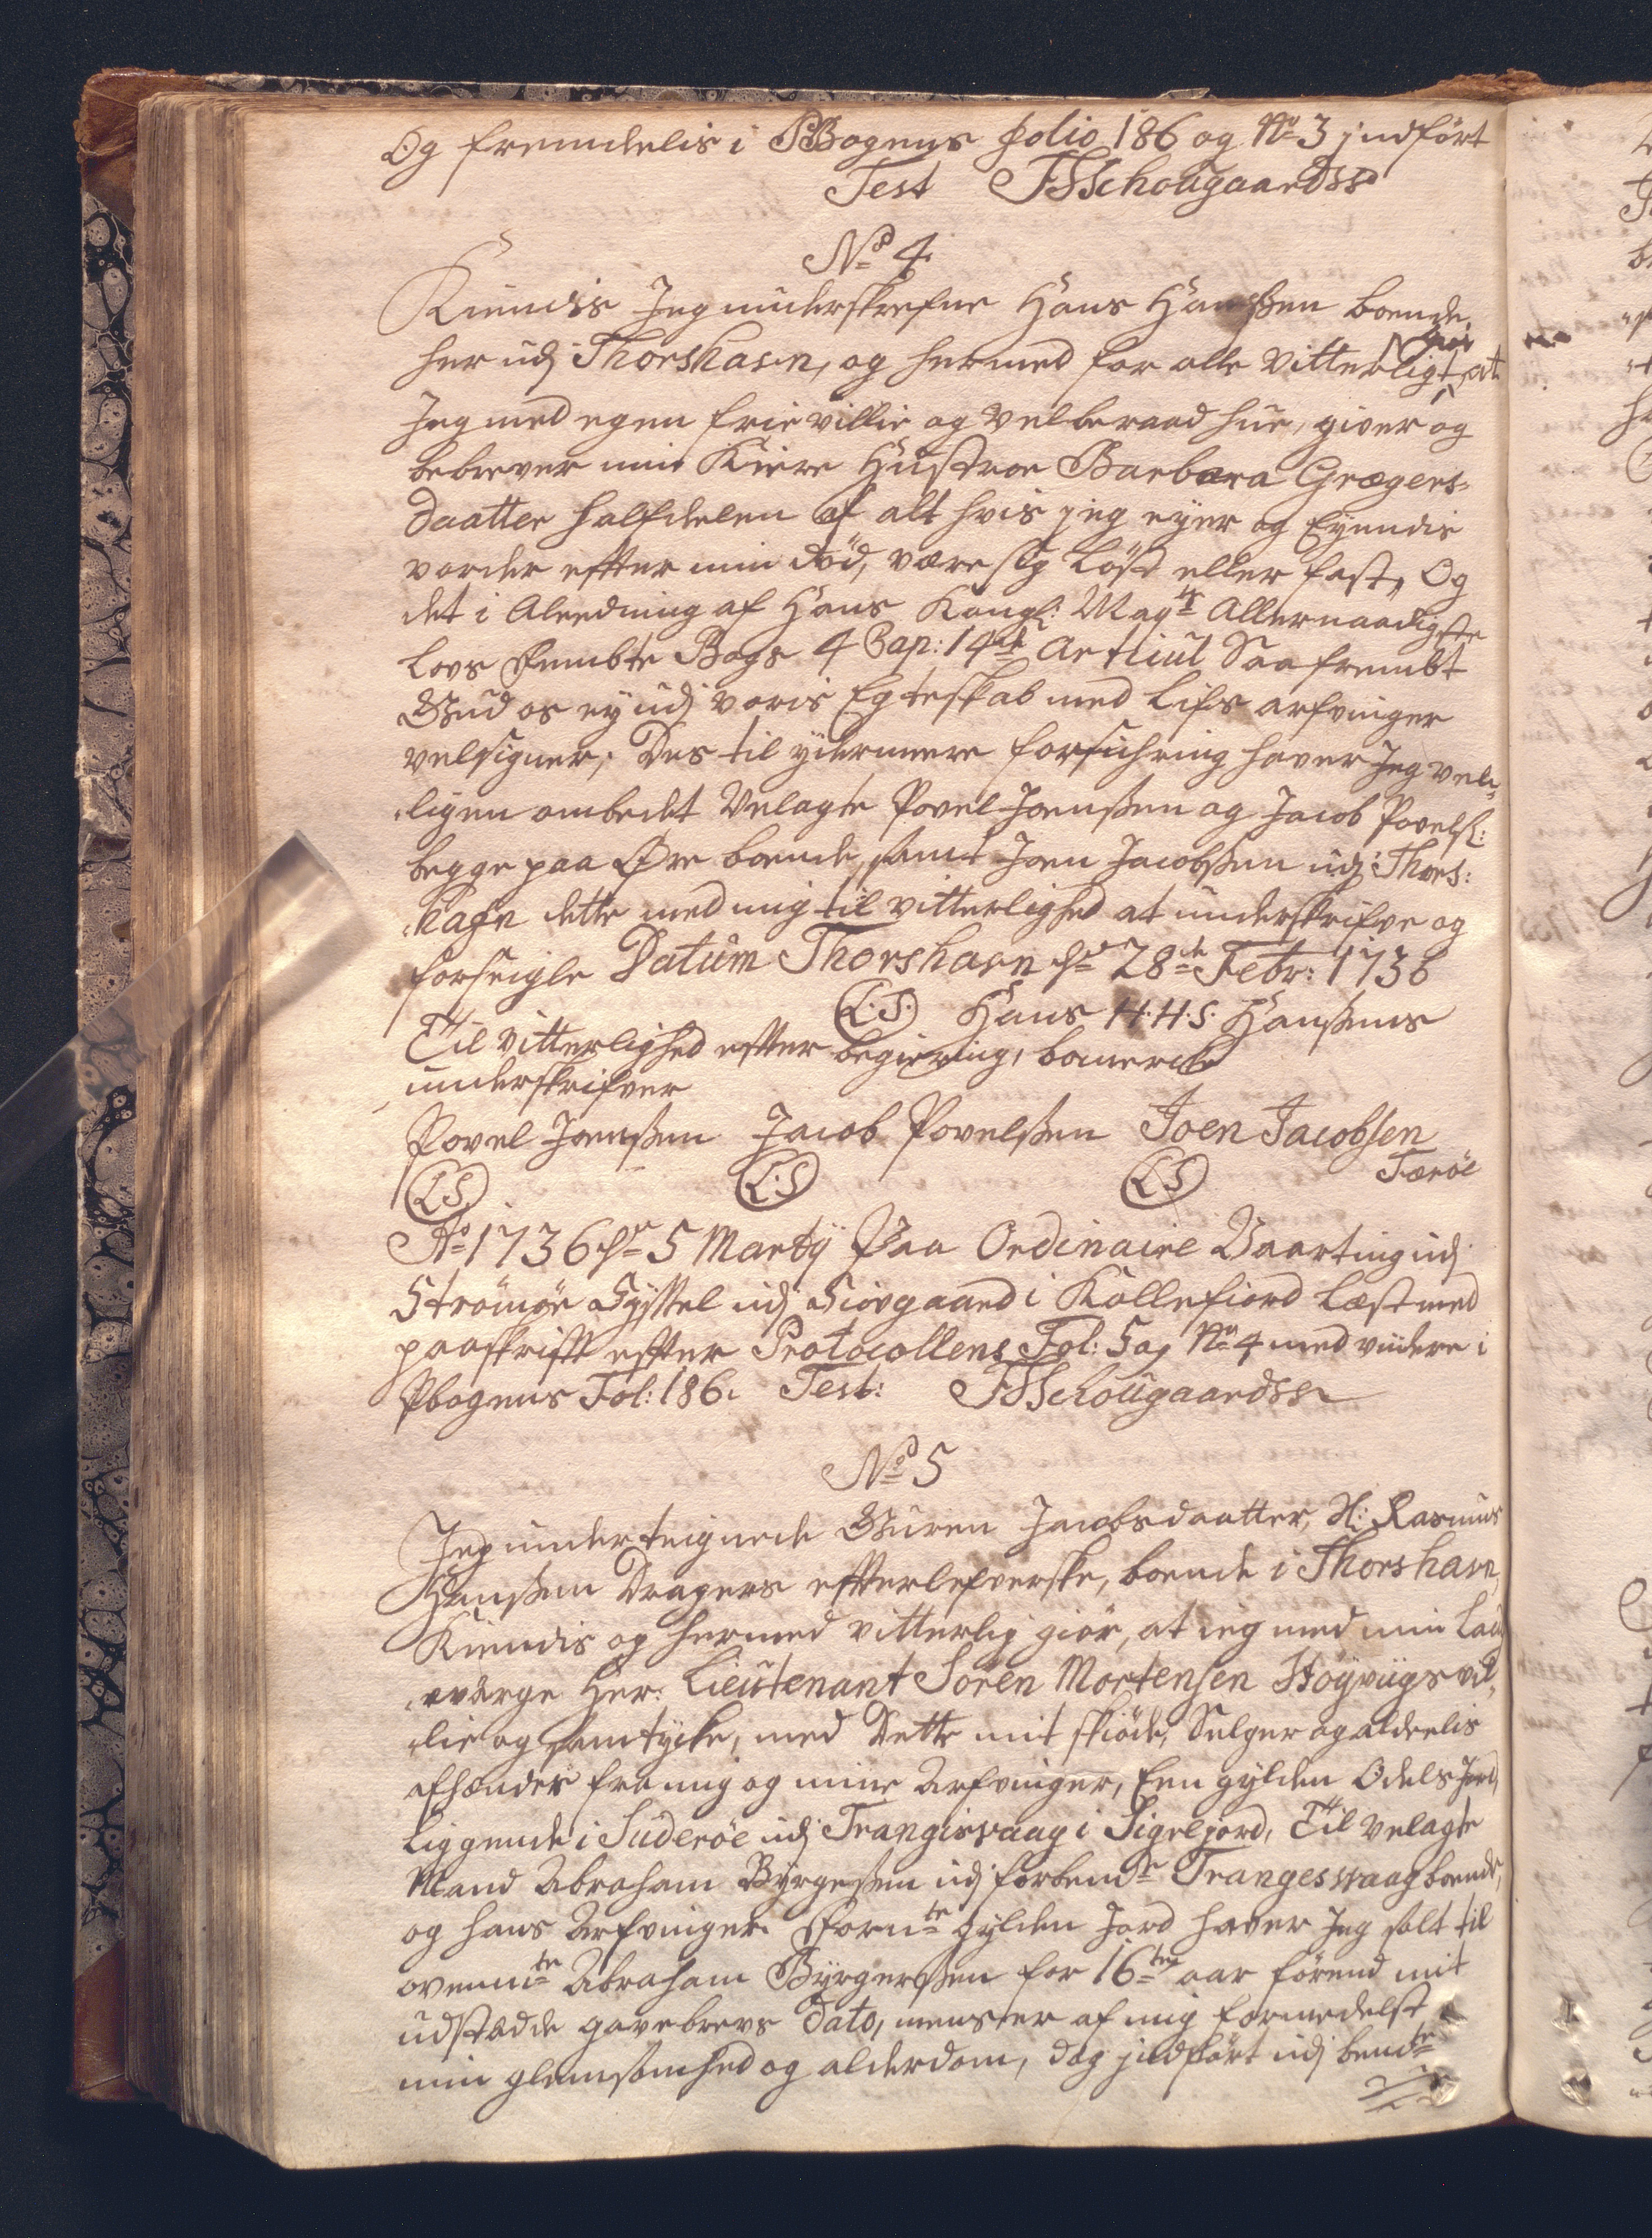 Og fremdelis i PBogens Folio 186 og No 3 jndført
Test FSSchougaardss
No 4
Kiendis Jeg underskrefne Hans Hansßen boende
her udj Thorshavn, og hermed for alle Vitterligt giør at
Jeg med egen frie villie og velberaad hue, giver og
bebrever min Kiere Hustroe Barbara Grægers-
daatter halfdelen af alt hvis jeg eyer og Eyendis
vorder efter min død, være sig Løst eller fast, Og
det i Aleedning af Hans Kongl: Mayts Allernaadigste
Lovs Fembte Bogs 4 Cap: 14de Articul Saafrembt
Gud os ey udj voris Egteskab med Lifs arfvinger
velsigner; Des til ydermeere forsichring haver Jeg ven-
ligen ombedet Velagte Povel Joensßen og Jacob Povels:
begge paa Øre boende, samt Joen Jacobsßen udj Thors:
hafn dette med mig til vitterlighed at underskrifve og
forseigle Datum Thorshavn d: 28de Febr: 1736
L.S. Hans H.H.S. Hansßens
Til Vitterlighed efter begiering, bomercke
underskrifver
Povel Joensßen Jacob Povelsßen Joen Jacobsen
Færøe
L.S. L.S. L.S.
Ao 1736 dn 5 Martÿ Paa Ordinaire Vaarting udj
Strømøe Syssel udj Siovgaard i Kollefiord Læst med
paaskrift efter Protocollens Fol: 5 og No 4 med viidere i
Pbogens Fol: 186. Test: FSSchougaardss
No 5
Jeg underteignede Guren Jacobsdaatter, Sl: Rasmus
Hansßen Dragers efterlefverske, boende i Thorshavn,
Kiendis og hermed vitterlig giør, at ieg med min Lau
værge Hr: Lieutenant Søren Mortensen Høyviigs vil-
lie og samtycke, med Dette mit skiøde, Selger og aldeelis
afhænder fra mig og mine Arfvinger, Een gylden Odels Jord,
Liggende i Suderøe udj Trangisvaag i Sigeljord, Til velagte
Mand Abraham Byrgesßen udj forbemte Trangesvaag boende,
og hans Arfvinger. Fornte gylden Jord haver Jeg solt til
ovenmte Abraham Byrgersßen for 16ten aar førend mit
udstædde gavebrevs Dato, mens er af mig formedelst
min glemsomhed og alderdom, dog jndført udj bemte